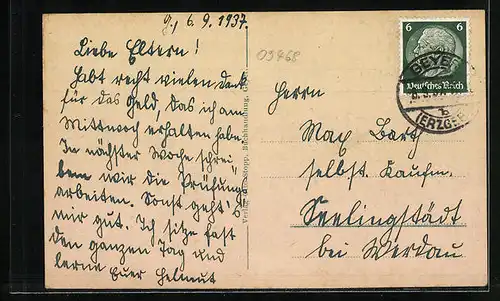 G., 6. 9. 1937.
Liebe Eltern!
Habt recht vielen Dank
für das Geld, das ich am
Mittwoch erhalten habe.
In nächster Woche schrei-
ben wir die Prüfungs-
arbeiten. Sonst geht's
mir gut. Ich sitze fast
den ganzen Tag und
lerne Euer Helmut
09768
Verlag Stopp, Buchhandlung,
6 6
Deutsches Reich
GEYER
b
(ERZGEB
Herrn
Max Barth
selbst. Kaufm.
Seelingstädt
bei Werdau